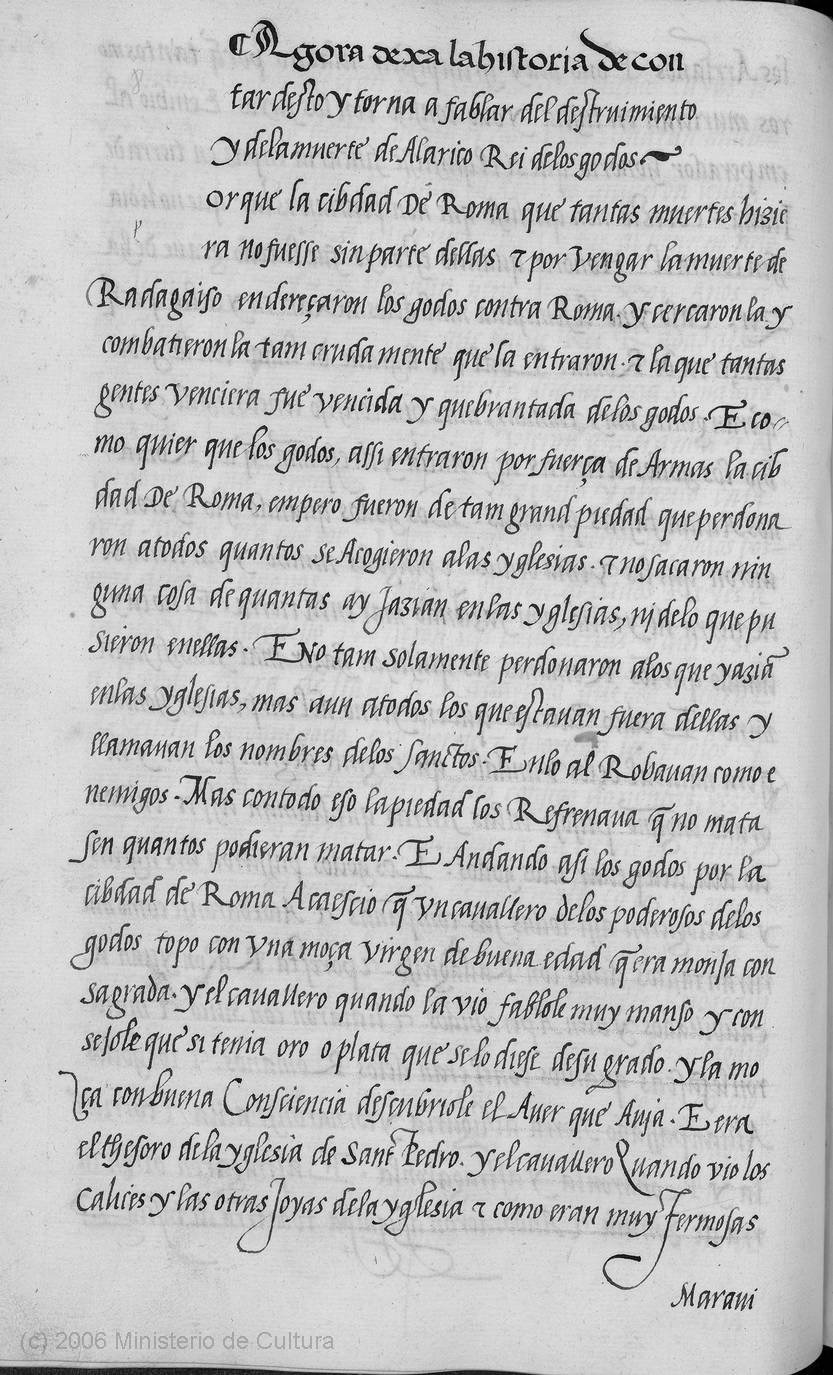 Agora dexa la historia de con
tar desto y torna a fablar del destruimiento
y dela muerte de Alarico Rei delos godos
p
Orque la cibdad De Roma que tantas muertes hizie
ra no fuesse sin parte dellas & por Vengar la muerte de
Radagaiso endereçaron los godos contra Roma. y cercaron la y
combatieron la tam cruda mente que la entraron. & la que tantas
gentes Venciera fue vencida y quebrantada delos godos. E co-
mo quier que los godos, assi entraron por fuerça de Armas la cib
dad De Roma, empero fueron de tam grand piedad que perdona
ron atodos quantos se Acogieron alas yglesias. & no sacaron nin
guna cosa de quantas ay Jazian enlas yglesias, nj delo que pu
sieron enellas. E No tam solamente perdonaron alos que yaziã
enlas yglesias, mas aun atodos los que estauan fuera dellas y
llamauan los nombres delos sanctos. Enlo al Robauan como e
nemigos. Mas contodo eso la piedad los Refrenaua q̃ no mata
sen quantos podieran matar. E Andando asi los godos por la
cibdad de Roma Acaescio q̃ Vn cauallero delos poderosos delos
godos topo con Vna moça virgen de buena edad q̃ era monJa con
sagrada. y el cauallero quando la vio fablole muy manso y con
seJole que si tenia oro o plata que selo diese desu grado. y la mo
ça con buena Consciencia descubriole el Auer que Auja. E era
el thesoro dela yglesia de Sant Pedro. y el cauallero Quando vio los
Calices y las otras Joyas dela yglesia & como eran muy fermosas
Maraui
(c) 2006 Ministerio de Cultura